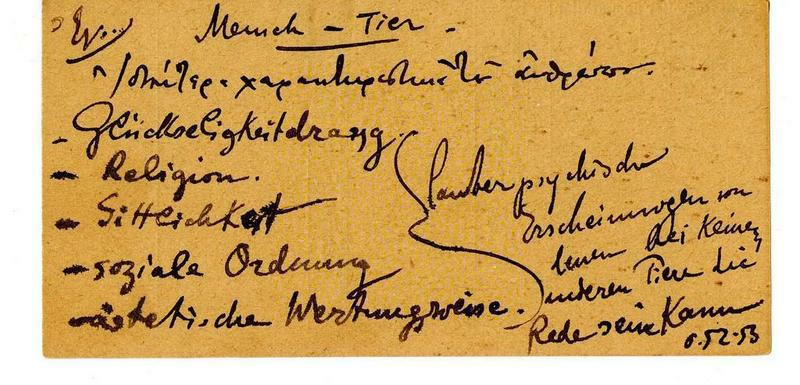 Mensch – Tier.
Glückseligkeitdrang.
– Religion.
– Sittlichkeit
– soziale Ordnung
– ästetische Wertungsweise.
lauter psychische
Erscheinungen von
denen bei keinem
anderen Tiere die
Rede sein kann
σ. 52-53